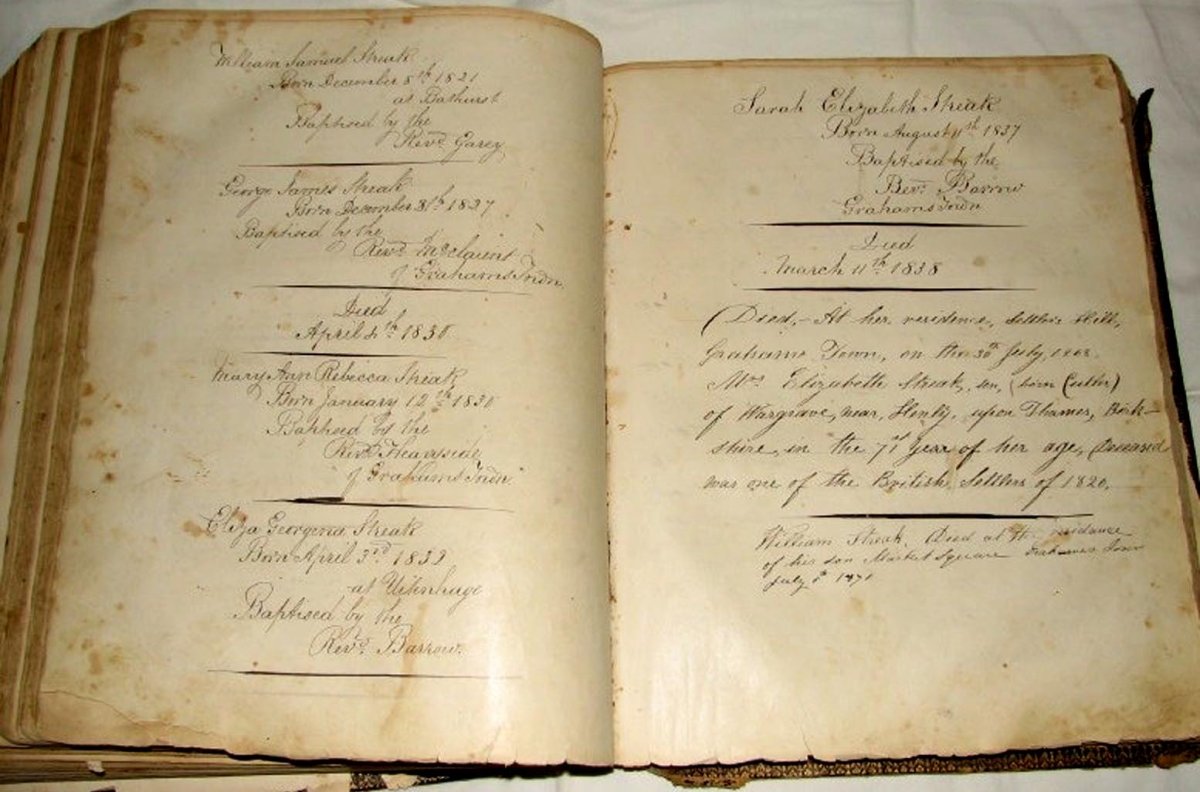 William Samuel Streak
Born December 8th 1821
at Bathurst
Baptised by the
Revd. Garey
George James Streak
Born December 8th 1827
Baptised by the
Revd.
of Grahams Town.
Died
April 4th 1830
Mary Ann Rebecca Streak
Born January 12th 1830
Baptised by the
Revd. Hearnside
of Grahams Town.
Eliza Georgena Streak
Born April 3rd 1832
at Uitenhage
Baptised by the
Revd. Barrow.
Sarah Elizabeth Streak
Born August 11th 1837
Baptised by the
Revd. Barrow
Grahams Town
Died
March 11th 1838
(Died,- At her residence, Settlers Hill,
Grahams Town, on the 30th July,
Mrs. Elizabeth Streak, sen, (born Cutler)
of Wargrave, near, Henly, upon Thames, Birk-
shire, in the 71st year of her age, Deceased
was one of the British Settlers of 1820.
William Streak, Died at the residence
of his son Market Square Grahams Town
July